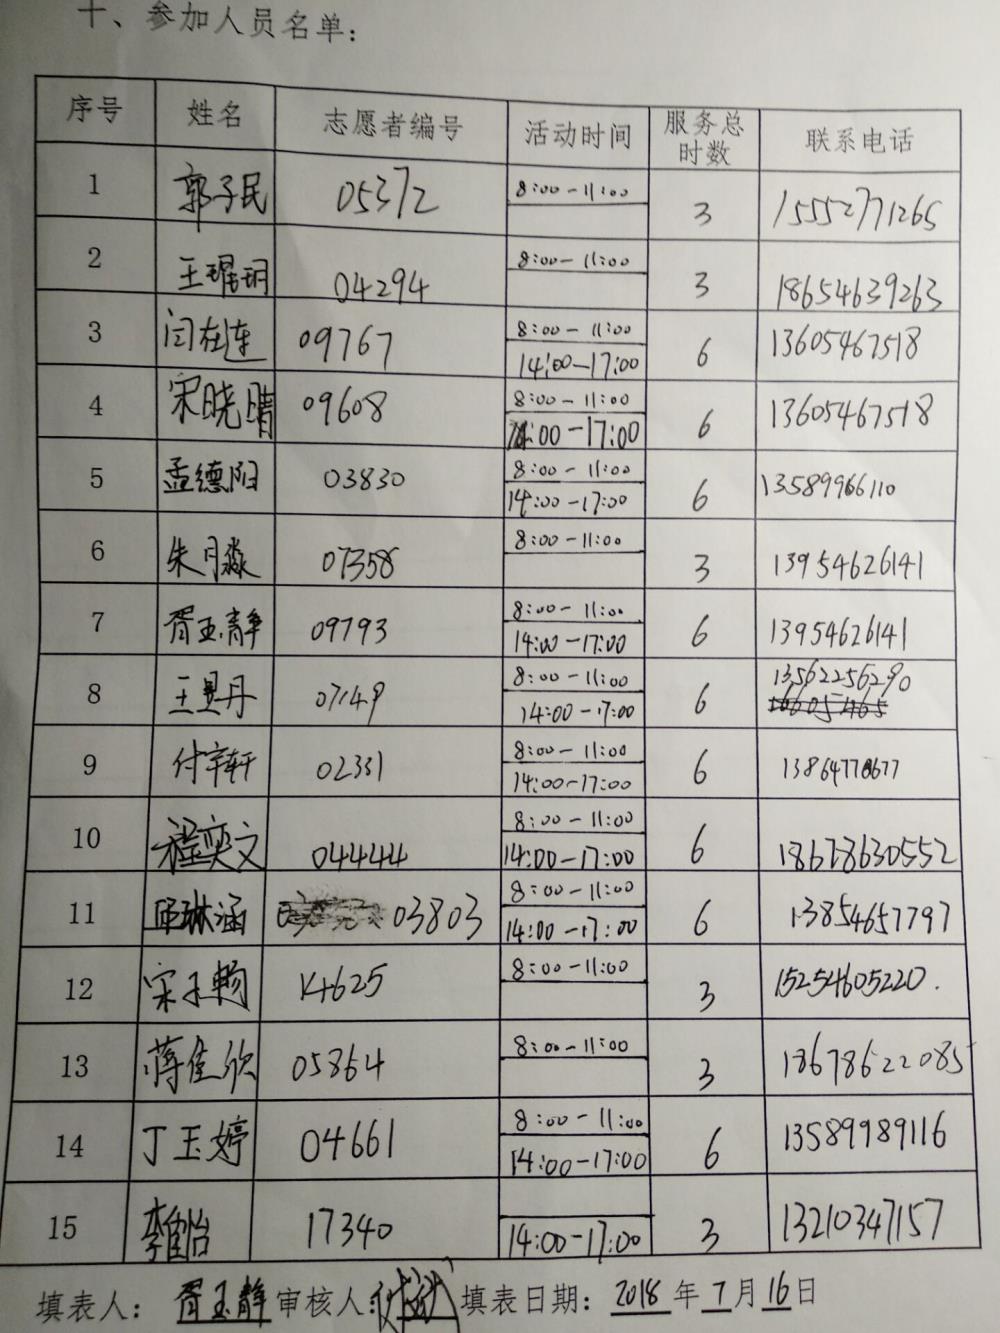 十、参加人员名单：
序号 姓名 志愿者编号 活动时间 服务总时数 联系电话
1 郭子民 05372 8:00-11:00 3 15552771265
2 王琨玥 04294 8:00-11:00 3 18654639263
3 闫在连 09767 8:00-11:00 14:00-17:00 6 13605467518
4 宋晓晴 09608 8:00-11:00 14:00-17:00 6 13605467518
5 孟德阳 03830 8:00-11:00 14:00-17:00 6 13589966110
6 朱月淼 07358 8:00-11:00 3 13954626141
7 胥玉静 09793 8:00-11:00 14:00-17:00 6 13954626141
8 王昱丹 07149 8:00-11:00 14:00-17:00 6 13562256290
9 付宇轩 02331 8:00-11:00 14:00-17:00 6 13864778677
10 程奕文 04444 8:00-11:00 14:00-17:00 6 18678630552
11 琳涵 03803 8:00-11:00 14:00-17:00 6 13854657797
12 宋子畅 14625 8:00-11:00 3 15254605220.
13 蒋佳欣 05864 8:00-11:00 3 18678622085
14 丁玉婷 04661 8:00-11:00 14:00-17:00 6 13589989116
15 李佳怡 17340 14:00-17:00 3 13210347157
填表人：胥玉静 审核人： 填表日期：2018年7月16日